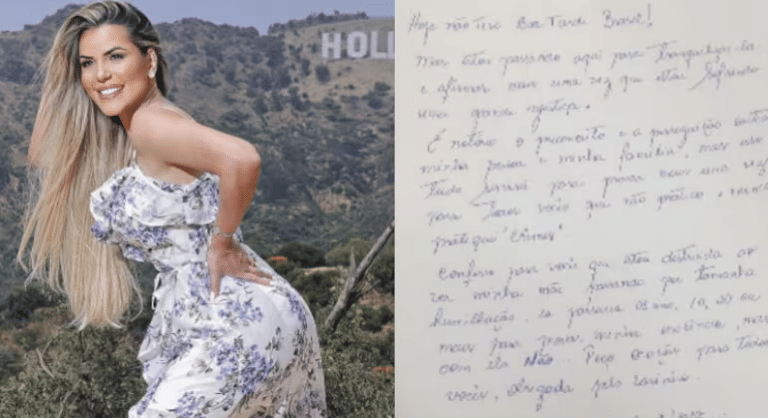 HOLL
Hoje não teve Boa Tarde Brasil!
Mas estou passando aqui para tranquilizá-los
e afirmar mais uma vez que estou sofrendo
uma grande injustiça.
É notório o preconceito e a perseguição contra
minha pessoa e minha família, mas isso
tudo servirá para provar mais uma vez
para todos vocês que não pratico e nunca
pratiquei "Crimes"
Confesso para vocês que estou destruída ao
ver minha mãe passando por tamanha
humilhação. eu passaria 01 ano, 10, 20 ou
mais para provar minha inocência, mas
com ela Não. Peço orações para todos
vocês, obrigada pelo carinho.